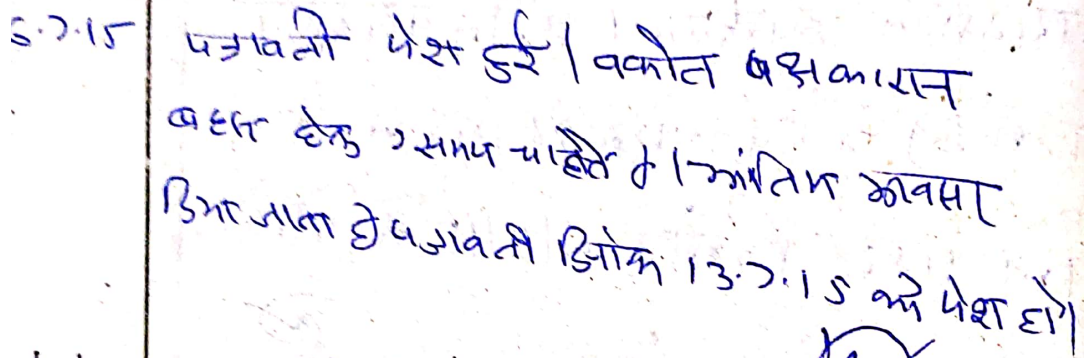 6.7.15 पत्रावली पेश हुई। वकील पक्षकारान
बहस हेतु समय चाहते है। अंतिम अवसर
दिया जाता है पत्रावली दिनांक 13.7.15 को पेश हो।